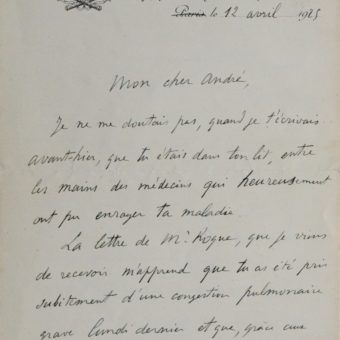 Paris le 12 avril 1925
Mon cher André,
Je ne me doutais pas, quand je t'écrivais
avant-hier, que tu étais dans ton lit, entre
les mains des médecins qui heureusement
ont pu enrayer ta maladie.
La lettre de Mr Rogue, que je viens
de recevoir m'apprend que tu as été pris
subitement d'une congestion pulmonaire
grave lundi dernier et que, grâce aux